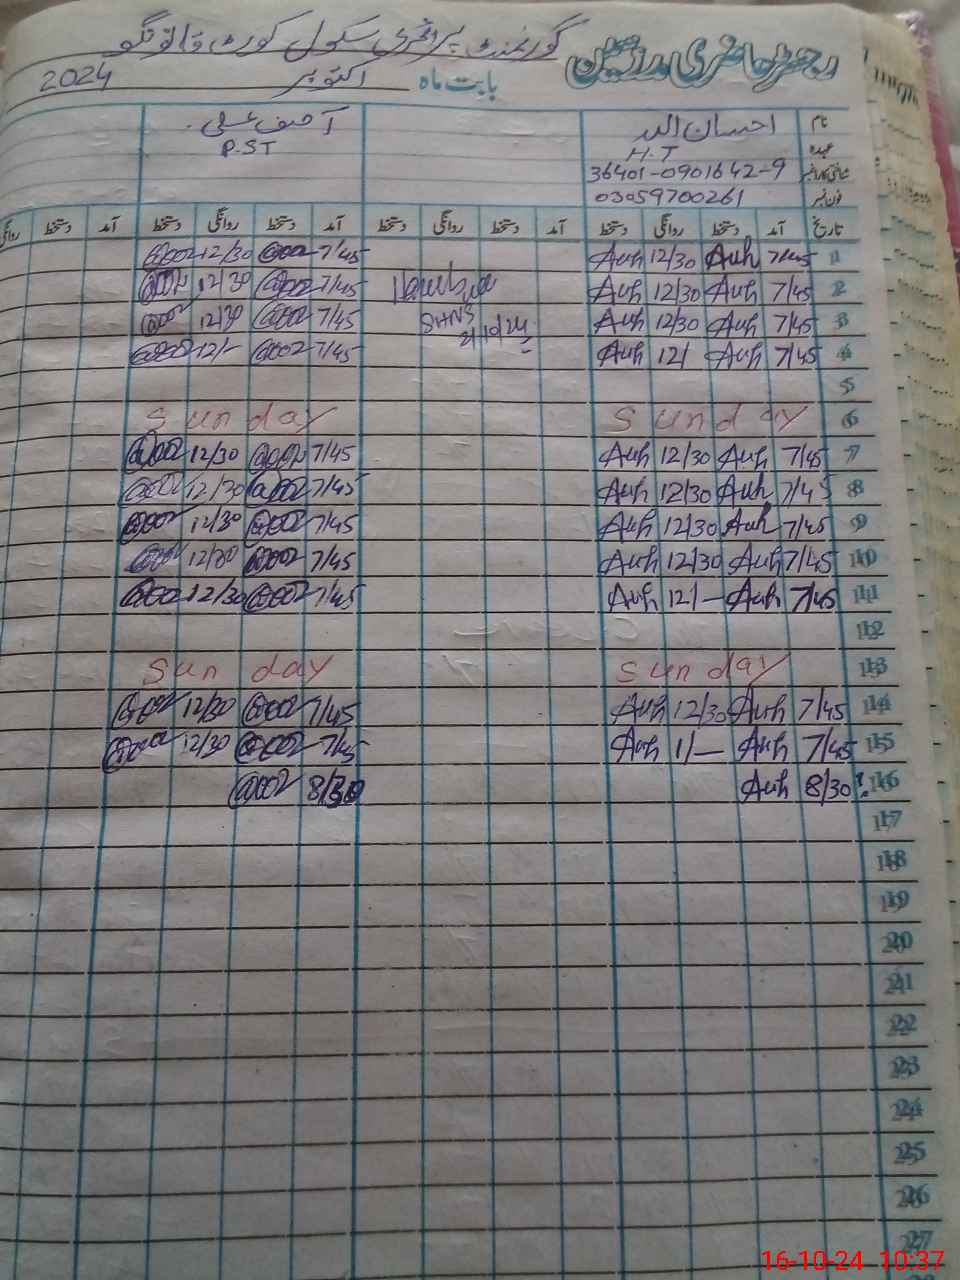 رجسٹر حاضری مدرسین گورنمنٹ پرائمری سکول کوٹ قانونگو
بابت ماہ اکتوبر 2024
نام احسان اللہ آصف علی
عہدہ H.T P.ST
شناختی کارڈ نمبر 36401-0901642-9
فون نمبر 03059700261
تاریخ آمد دستخط روانگی دستخط آمد دستخط روانگی دستخط آمد دستخط روانگی دستخط آمد دستخط روانگی
1 7/45 Auh 12/30 Auh 7/45 12/30
2 7/45 Auh 12/30 Auh 7/45 12/30
3 7/45 Auh 12/30 Auh 2/10/24 7/45 12/30
4 7/45 Auh 12/ Auh 7/45 12/-
5
6 Sunday Sunday
7 7/45 Auh 12/30 Auh 7/45 12/30
8 7/45 Auh 12/30 Auh 7/45 12/30
9 7/45 Auh 12/30 Auh 7/45 12/30
10 7/45 Auh 12/30 Auh 7/45 12/30
11 7/45 Auh 12/- Auh 7/45 12/30
12
13 Sunday Sunday
14 7/45 Auh 12/30 Auh 7/45 12/30
15 7/45 Auh 1/- Auh 7/45 12/30
16 8/30 Auh 8/30
17
18
19
20
21
22
23
24
25
26
27
16-10-24 10:37